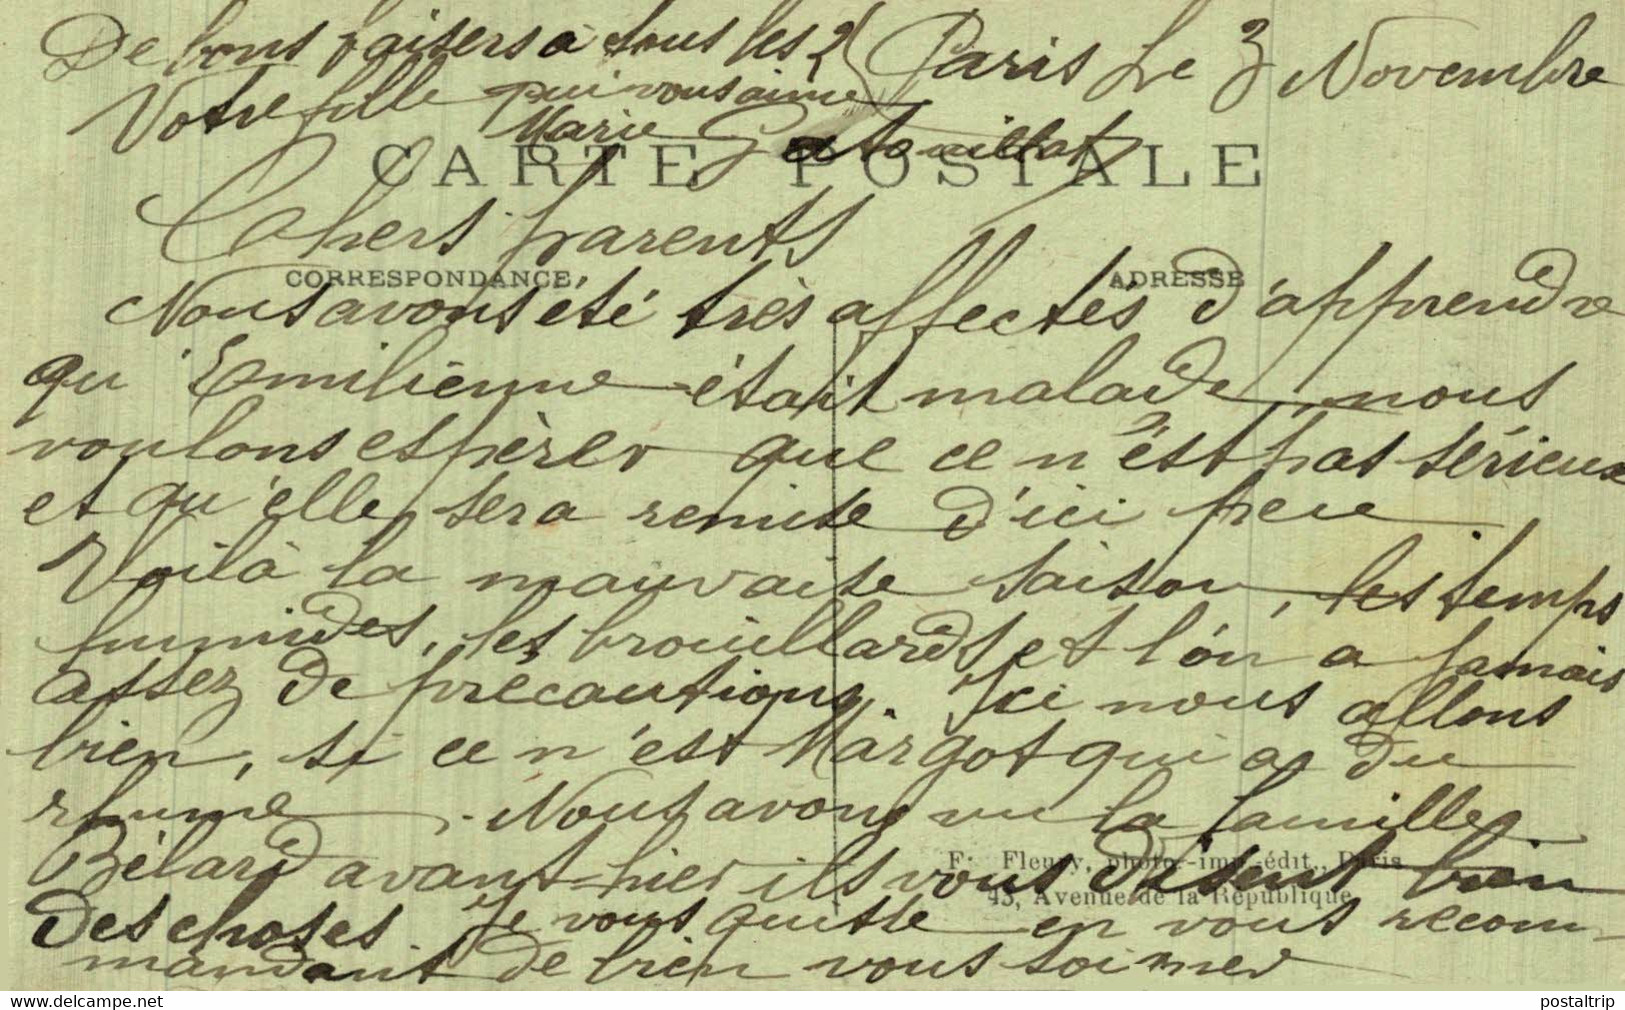 De bons baisers à tous les 2
Votre fille qui vous aime
Marie Gatouillat
Paris Le 3 Novembre
CARTE POSTALE
Chers parents
CORRESPONDANCE
ADRESSE
Nous avons été très affectés d'apprendre
qu'Emilienne était malade, nous
voulons espérer que ce n'est pas sérieux
et qu'elle sera remise d'ici peu
Voilà la mauvaise saison, les temps
humides, les brouillards et l'on a jamais
assez de précautions. Ici nous allons
bien, si ce n'est Margot qui a du
rhume. Nous avons vu la famille
Bélard avant-hier ils vous disent bien
F. Fleury, photo.-imp.-édit., Paris
43, Avenue de la République
des choses. Je vous quitte en vous recom-
mandant de bien vous soigner
www.delcampe.net
postaltrip